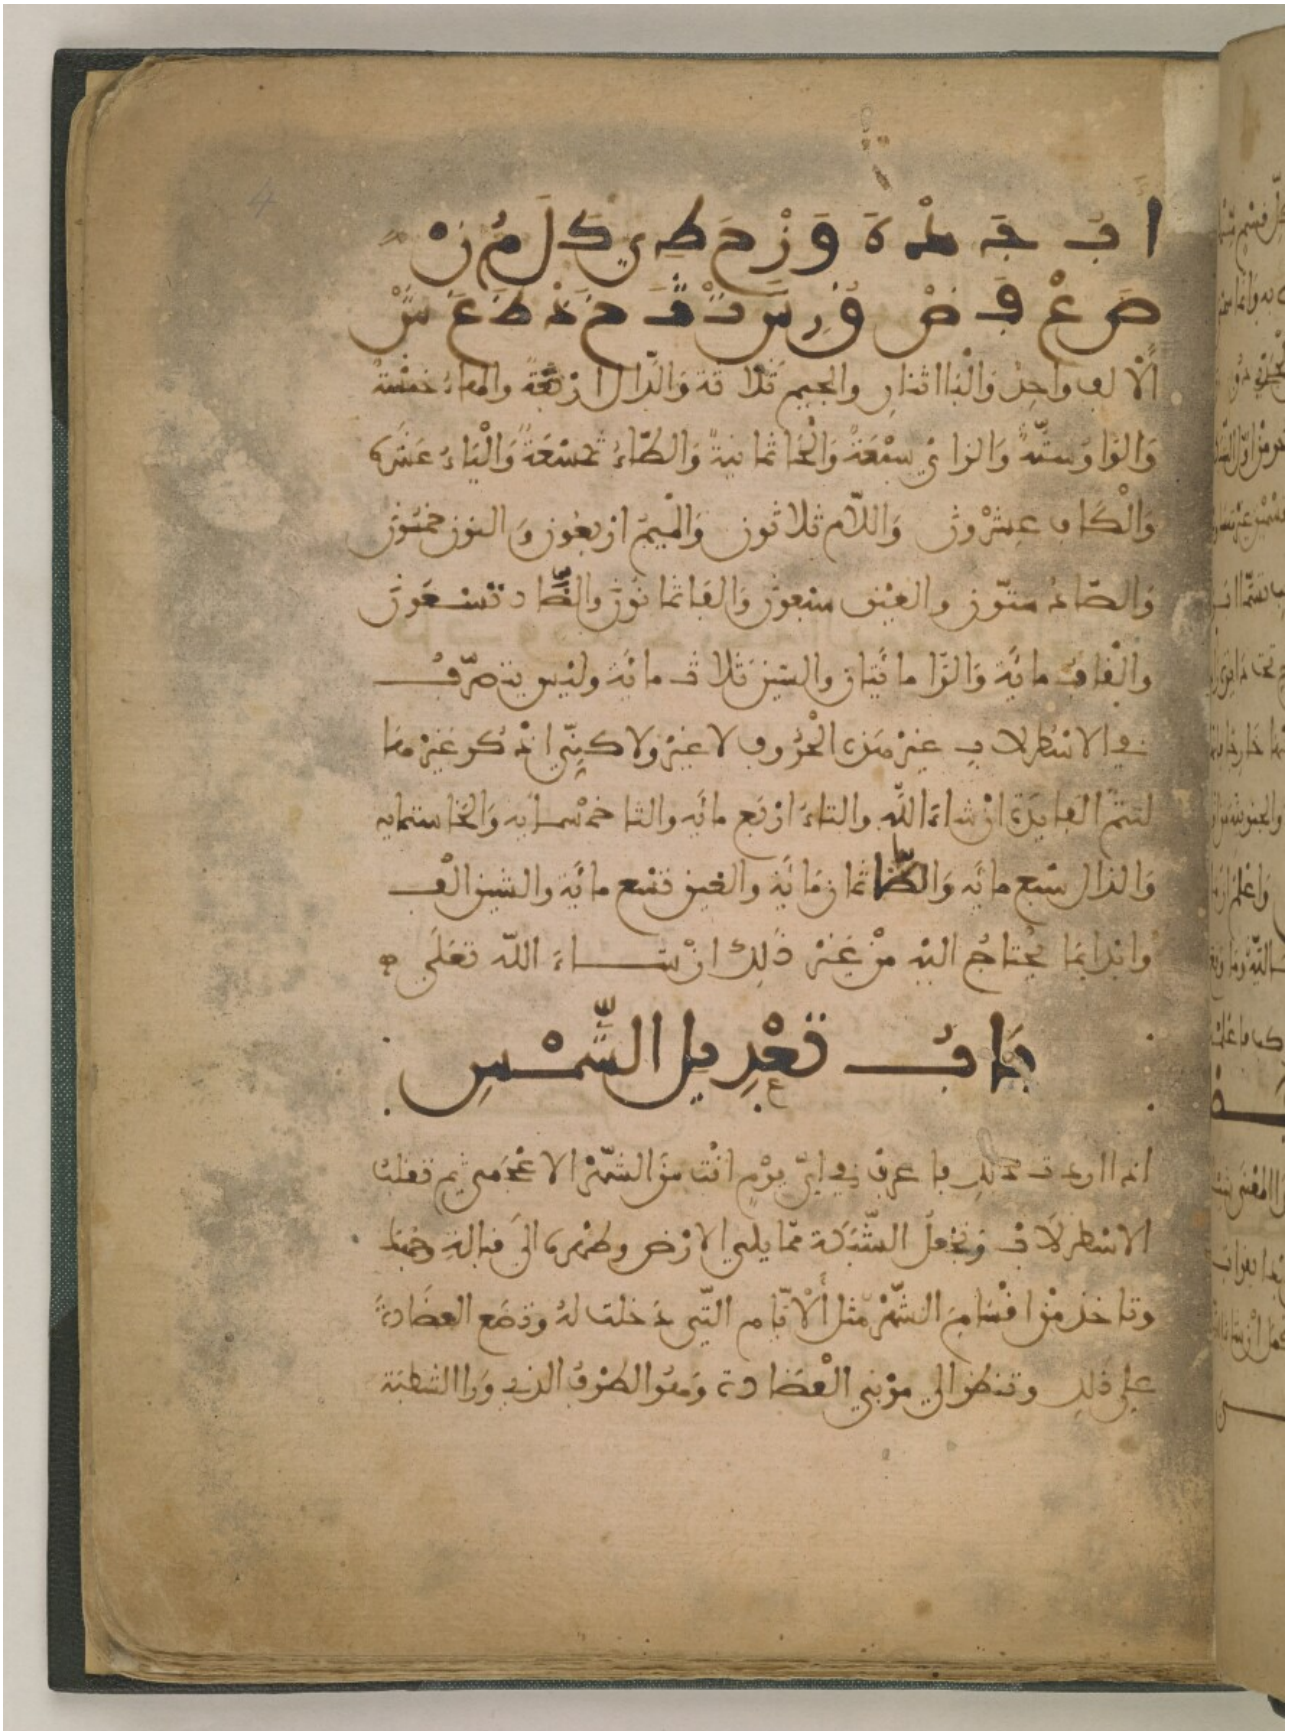 4
ا ب ج د ه و ز ح ط ي ك ل م ن
ص ع ف ض ق ر س ت ث خ ذ ظ غ ش
الالف واحد والبا اثنان والجيم ثلاثة والدال اربعة والهاء خمسة
والواو ستة والزاي سبعة والحا ثمانية والطاء تسعة والياء عشرة
والكاف عشرون واللام ثلاثون والميم اربعون والنون خمسون
والصاد ستون والعين سبعون والفا ثمانون والضاد تسعون
والقاف مائة والرا مائتان والسين ثلاث مائة وليس يتصرف
في الاسطرلاب غير هذه الحروف لا غير ولاكني اذكر غيرها
لتتم الفايدة ان شاء الله والتاء اربع مائه والثا خمسمائه والخا ستمايه
والذال سبع مائه والظا ثمان مائة والغين تسع مائة والشين الف
وابدا بما يحتاج اليه من غير ذلك ان شاء الله تعلى
باب تعديل الشمس
اذا اردت ذلك فاعرف في اي يوم انت من الشهر الاعجمي ثم تقلب
الاسطرلاب وتجعل الشبكة مما يلي الارض وظهره الى قبالة
وتاخذ من اقسام الشهر مثل الايام التي دخلت له وتضع العضادة
على ذلك وتنظر الي مري العضادة وهو الطرف الذي ورا الشطبة